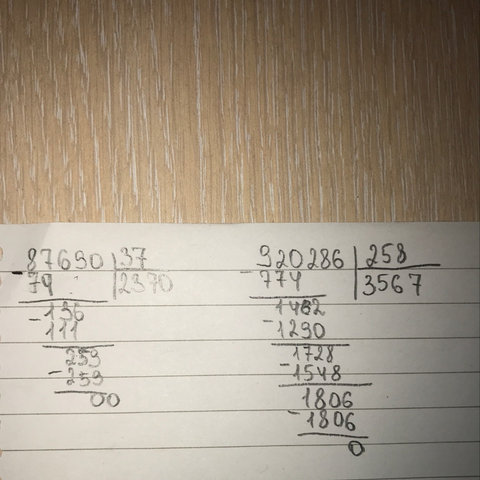 87690 37
- 74 2370
136
- 111
259
- 259
00
920286 258
- 774 3567
1462
- 1290
1728
- 1548
1806
- 1806
0